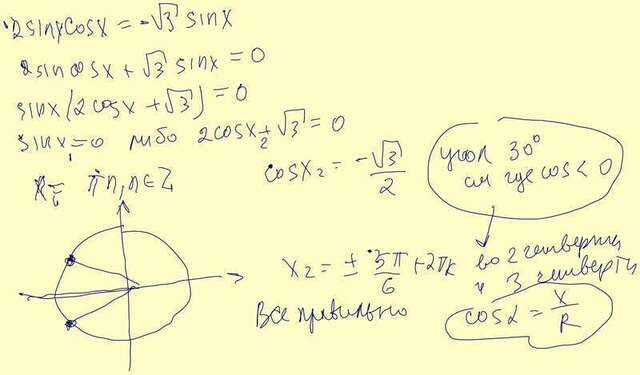 2sinxcosx = -√3 sinx
2sincosx + √3 sinx = 0
sinx(2cosx + √3) = 0
sinx₁=0 либо 2cosx₂+√3 = 0
x₁= πn, n∈Z
cosx₂ = -√3/2
угол 30°
см где cos < 0
x₂ = ± 5π/6 +2πk
во 2 четверти
и 3 четверти
Все правильно
cosα = x/R